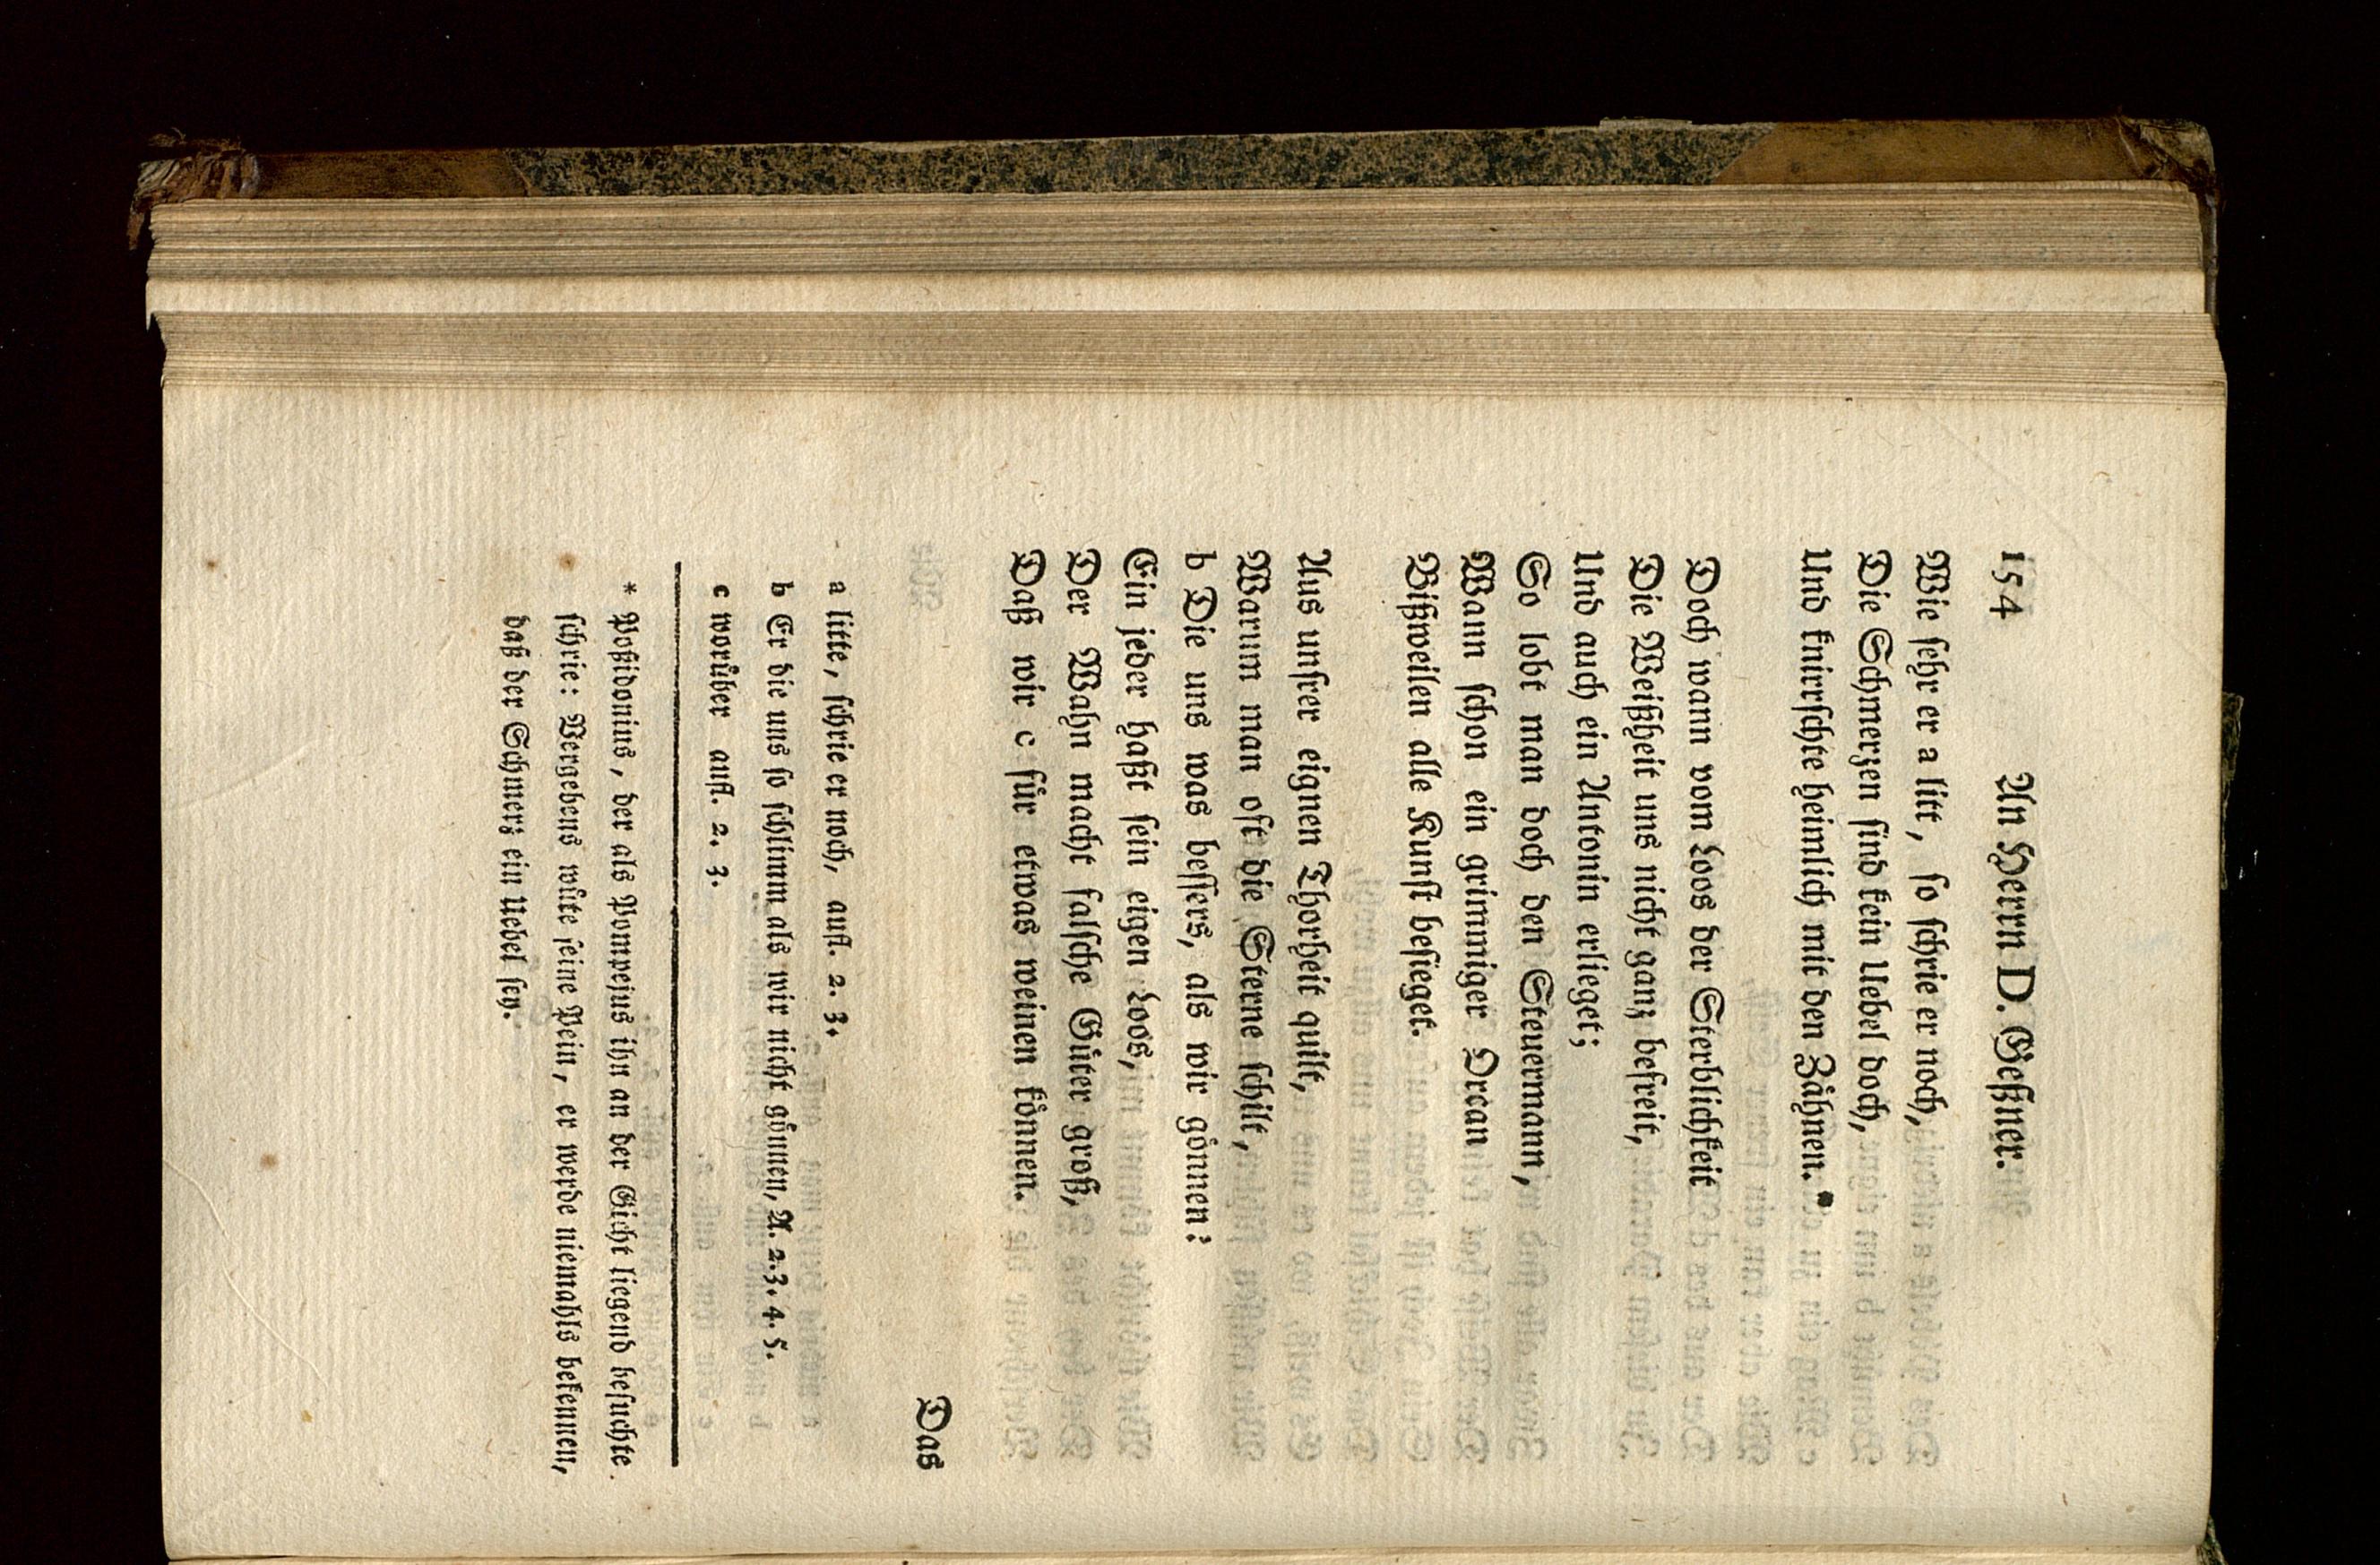 154 An Herrn D. Geßner.
Wie ſehr er a litt, ſo ſchrie er noch,
Die Schmerzen ſind kein Uebel doch,
Und knirrſchte heimlich mit den Zähnen. *
Doch wann vom Loos der Sterblichkeit
Die Weißheit uns nicht ganz befreit,
Und auch ein Antonin erlieget;
So lobt man doch den Steuermann,
Wann ſchon ein grimmiger Orcan
Bißweilen alle Kunſt beſieget.
Aus unſrer eignen Thorheit quillt,
Warum man oft die Sterne ſchilt,
b Die uns was beſſers, als wir gönnen:
Ein jeder haßt ſein eigen Loos,
Der Wahn macht falſche Güter groß,
Daß wir c für etwas weinen können.
Das
a litte, ſchrie er noch, aufl. 2. 3.
b Er die uns ſo ſchlimm als wir nicht gönnen, A. 2. 3. 4. 5.
c worüber aufl. 2. 3.
* Poßidonius, der als Pompejus ihn an der Gicht liegend beſuchte.
ſchrie: Vergebens wüte ſeine Pein, er werde niemahls bekennen,
daß der Schmerz ein Uebel ſey.